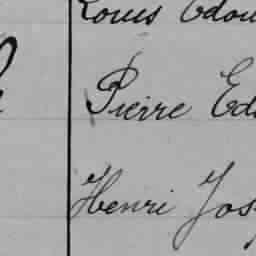 Louis Edou
Pierre Ed
Henri Jos